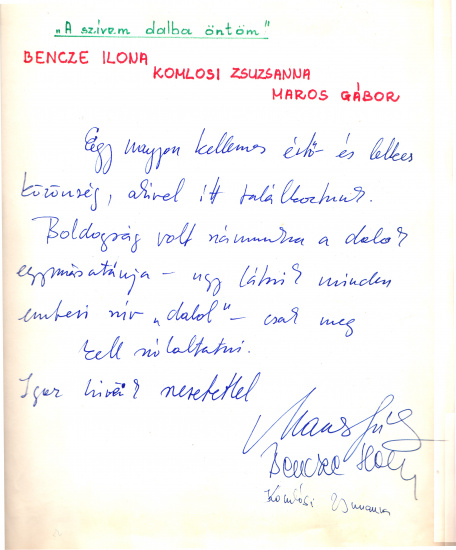 „A szívem dalba öntöm"
BENCZE ILONA
KOMLOSI ZSUZSANNA
MAROS GÁBOR
Egy nagyon kellemes értő- és lelkes
közönség, akivel itt találkoztunk.
Boldogság volt számunkra a dalok
egymásutánja – úgy látszik minden
emberi szív „dalol" – csak meg
kell szólaltatni.
Igaz szeretettel
Maros Gábor
Bencze Ilona
Komlósi Zsuzsanna